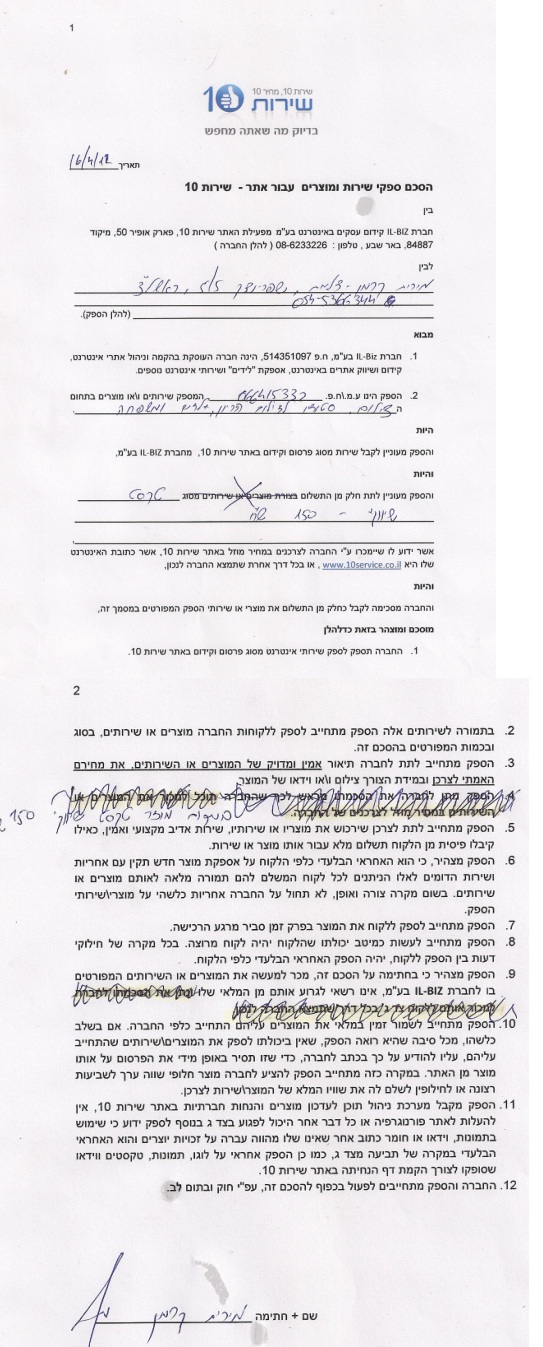 1
שירות 10, מחיר 10
10 שירות
בדיוק מה שאתה מחפש
תאריך 16/4/12
הסכם ספקי שירות ומוצרים עבור אתר - שירות 10
בין
חברת IL-BIZ קידום עסקים באינטרנט בע"מ מפעילת האתר שירות 10, פארק אופיר 50, מיקוד
84887, באר שבע , טלפון : 08-6233226 ( להלן החברה )
לבין
מירית קרמן
(להלן הספק).
מבוא
1. חברת IL-Biz בע"מ, ח.פ 514351097, הינה חברה העוסקת בהקמה וניהול אתרי אינטרנט,
קידום ושיווק אתרים באינטרנט, אספקת "לידים" ושירותי אינטרנט נוספים.
2. הספק הינו ע.מ\ח.פ. המספק שירותים ו\או מוצרים בתחום
ה צילום, סטודיו לצילום הריון, ילדים ומשפחה
היות
והספק מעוניין לקבל שירות מסוג פרסום וקידום באתר שירות 10, מחברת IL-BIZ בע"מ,
והיות
והספק מעוניין לתת חלק מן התשלום בצורת מוצרים או שירותים מסוג טקסט
שיווקי - 150 ש"ח
אשר ידוע לו שיימכרו ע"י החברה לצרכנים במחיר מוזל באתר שירות 10, אשר כתובת האינטרנט
שלו היא www.10service.co.il , או בכל דרך אחרת שתמצא החברה לנכון,
והיות
והחברה מסכימה לקבל כחלק מן התשלום את מוצרי או שירותי הספק המפורטים במסמך זה,
מוסכם ומוצהר בזאת כדלהלן
1. החברה תספק לספק שירותי אינטרנט מסוג פרסום וקידום באתר שירות 10.
2
2. בתמורה לשירותים אלה הספק מתחייב לספק ללקוחות החברה מוצרים או שירותים, בסוג
ובכמות המפורטים בהסכם זה.
3. הספק מתחייב לתת לחברה תיאור אמין ומדויק של המוצרים או השירותים, את מחירם
האמתי לצרכן ובמידת הצורך צילום ו\או וידאו של המוצר.
4. הספק נותן לחברה את הסכמתו מראש לכך שהחברה תוכל למכור את המוצרים או
השירותים במחיר מוזל לצרכנים של החברה.
במקום מוצר טקסט שיווקי 150
5. הספק מתחייב לתת לצרכן שירכוש את מוצריו או שירותיו, שירות אדיב מקצועי ואמין, כאילו
קיבלו פיסית מן הלקוח תשלום מלא עבור אותו מוצר או שירות.
6. הספק מצהיר, כי הוא האחראי הבלעדי כלפי הלקוח על אספקת מוצר חדש תקין עם אחריות
ושירות הדומים לאלו הניתנים לכל לקוח המשלם להם תמורה מלאה לאותם מוצרים או
שירותים. בשום מקרה צורה ואופן, לא תחול על החברה אחריות כלשהי על מוצרי\שירותי
הספק.
7. הספק מתחייב לספק ללקוח את המוצר בפרק זמן סביר מרגע הרכישה.
8. הספק מתחייב לעשות כמיטב יכולתו שהלקוח יהיה לקוח מרוצה. בכל מקרה של חילוקי
דעות בין הספק ללקוח, יהיה הספק האחראי הבלעדי כלפי הלקוח.
9. הספק מצהיר כי בחתימה על הסכם זה, מכר למעשה את המוצרים או השירותים המפורטים
בו לחברת IL-BIZ בע"מ, אינו רשאי לגרוע אותם מן המלאי שלו ונותן את הסכמתו לחברה
למכור אותם ללקוח צד ג' בכל דרך שתמצא החברה לנכון.
10. הספק מתחייב לשמור זמין במלאי את המוצרים עליהם התחייב כלפי החברה. אם בשלב
כלשהו, מכל סיבה שהיא רואה הספק, שאין ביכולתו לספק את המוצרים\שירותים שהתחייב
עליהם, עליו להודיע על כך בכתב לחברה, כדי שזו תסיר באופן מידי את הפרסום על אותו
מוצר מן האתר. במקרה כזה מתחייב הספק להציע לחברה מוצר חלופי שווה ערך לשביעות
רצונה או לחילופין לשלם לה את שוויו המלא של המוצר\שירות לצרכן.
11. הספק מקבל מערכת ניהול תוכן לעדכון מוצרים והנחות חברתיות באתר שירות 10, אין
להעלות לאתר פורנוגרפיה או כל דבר אחר היכול לפגוע בצד ג בנוסף לספק ידוע כי שימוש
בתמונות, וידאו או חומר כתוב אחר שאינו שלו מהווה עברה על זכויות יוצרים והוא האחראי
הבלעדי במקרה של תביעה מצד ג, כמו כן הספק אחראי על לוגו, תמונות, טקסטים ווידאו
שסופקו לצורך הקמת דף הנחיתה באתר שירות 10.
12. החברה והספק מתחייבים לפעול בכפוף להסכם זה, עפ"י חוק ובתום לב.
שם + חתימה מירית קרמן